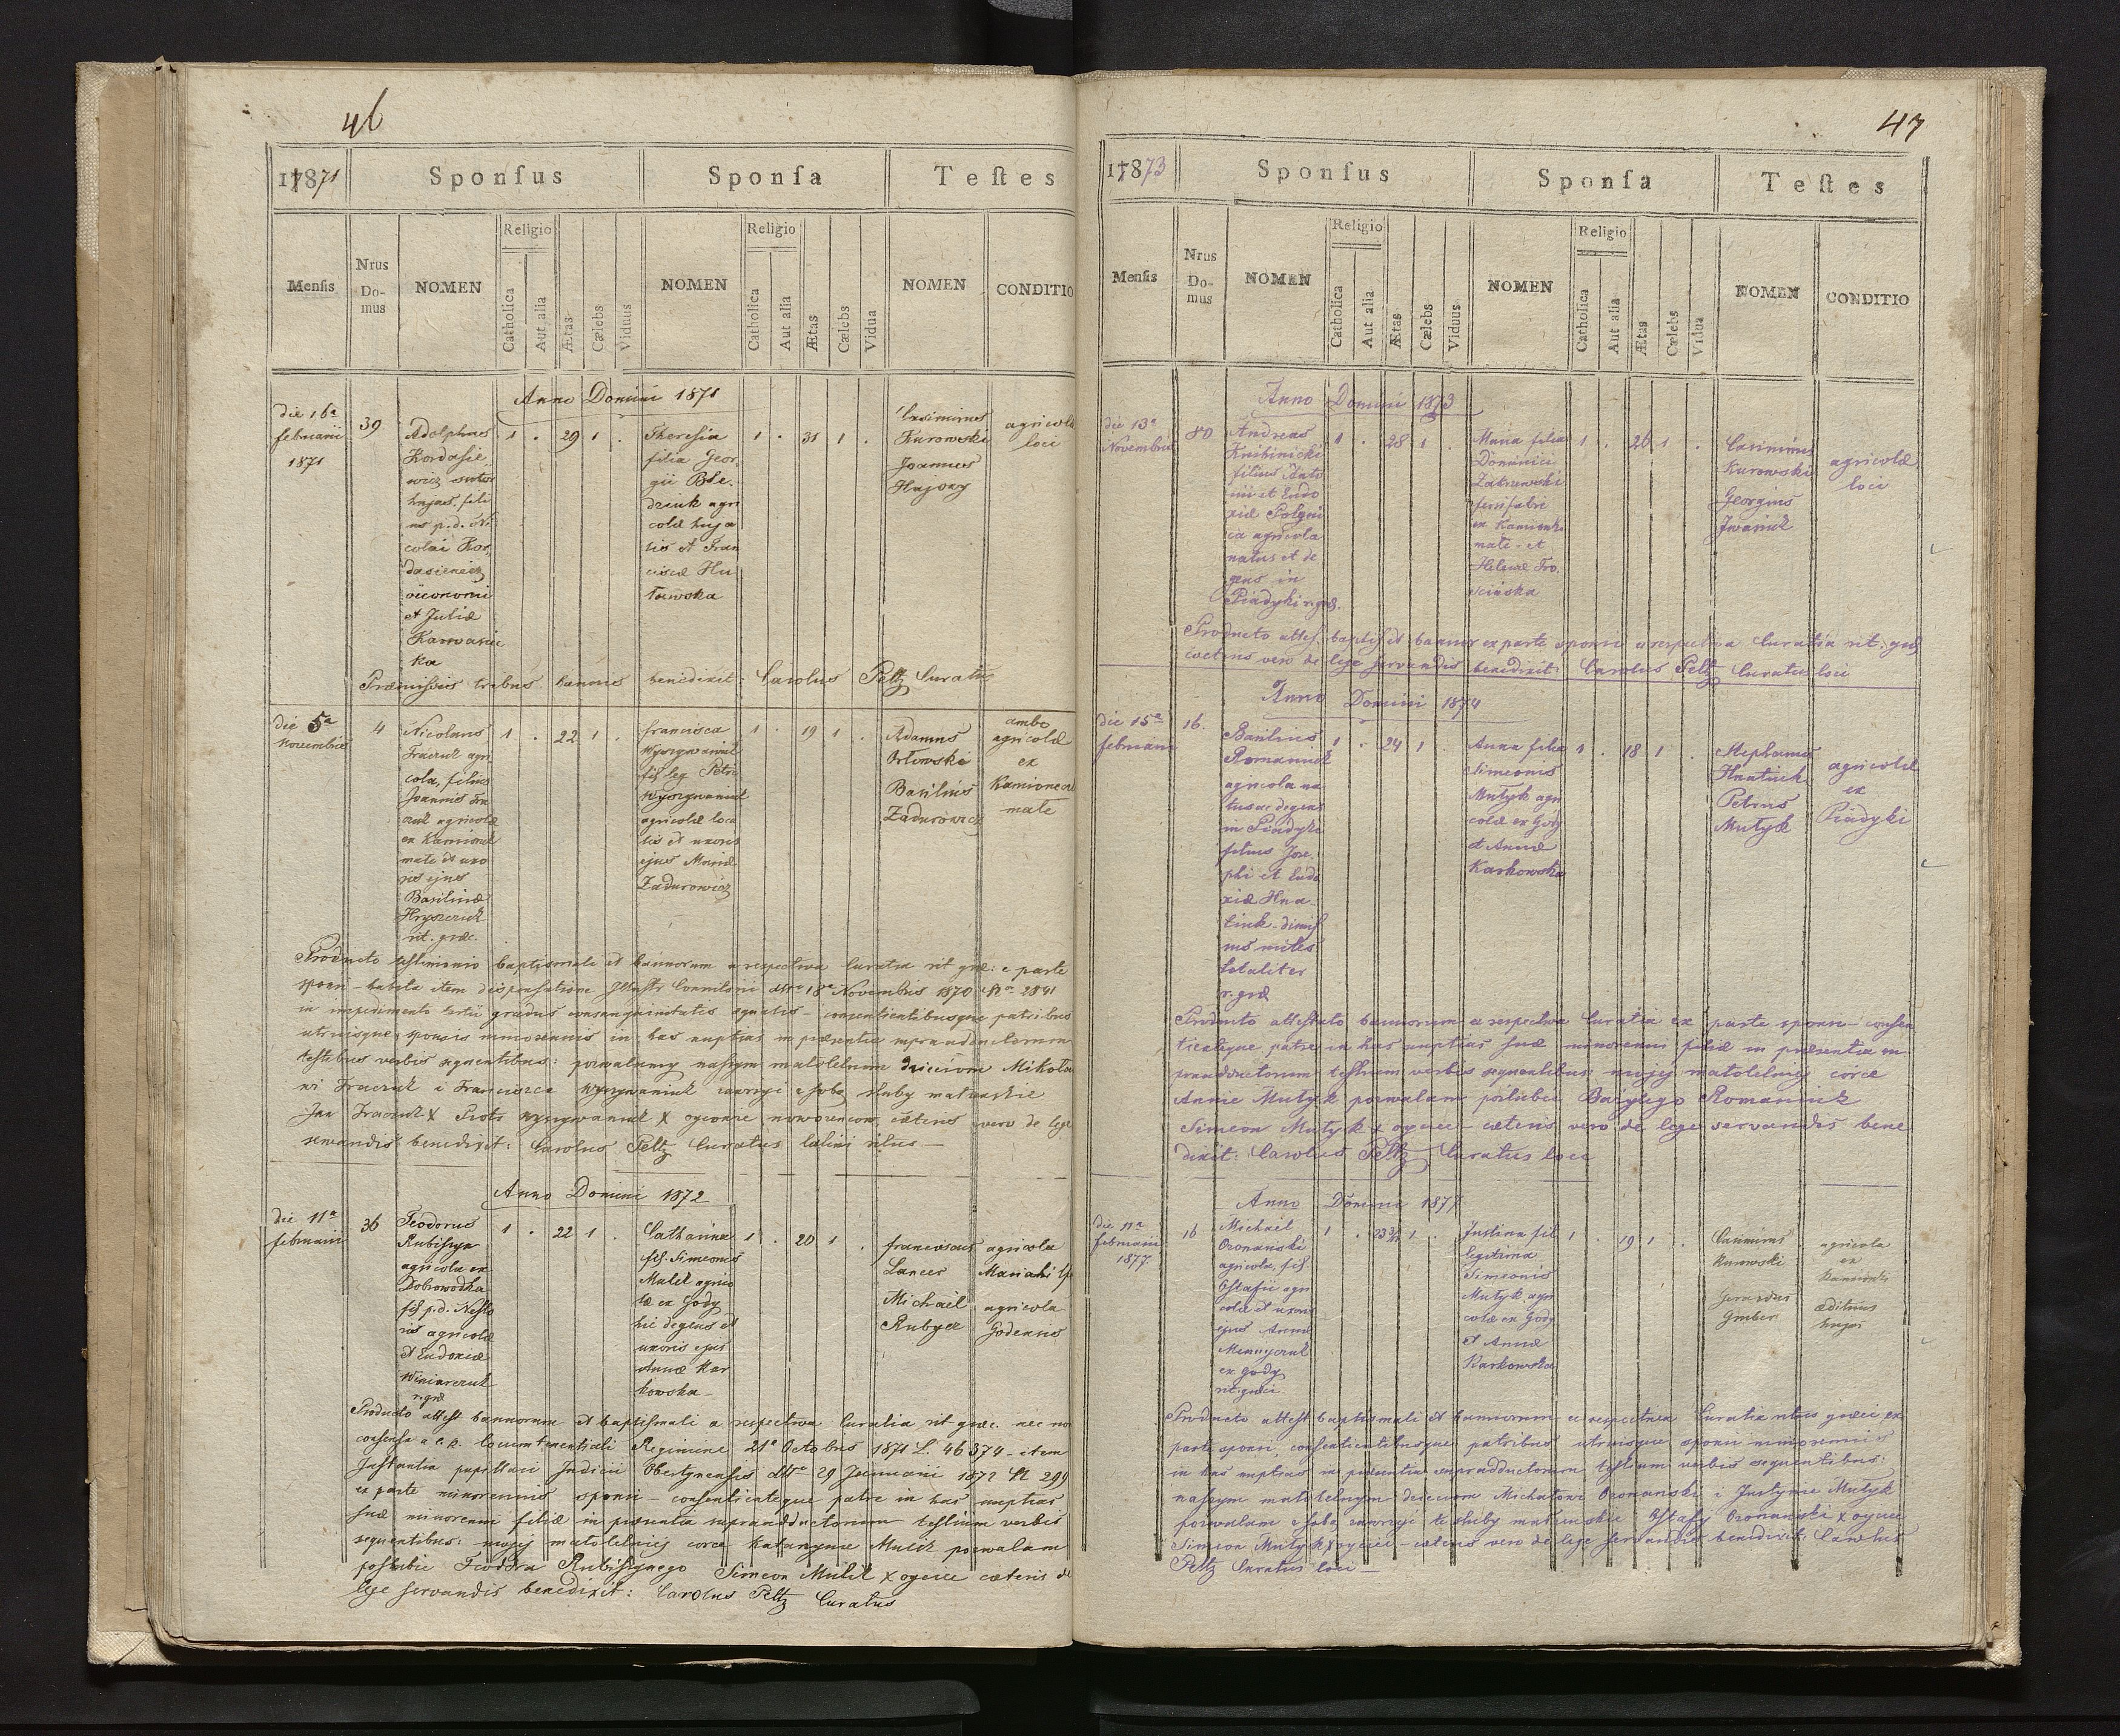 46
17871 Sponſus Sponſa Teſtes
Menſis Nrus Domus NOMEN Religio Catholica Aut alia Ætas Cælebs Viduus NOMEN Religio Catholica Aut alia Ætas Cælebs Vidua NOMEN CONDITIO
Anno Domini 1871
die 16a
februarii
1871
39
Adolphus
Kordasie
wicz sutor
hujas. fili
us p.d. Ni
colai Kor
dasiewicz
oeconomi
et Juliæ
Karwasiec
ka
1 . 29 1 .
Theresia
filia Geor
gii Ble
dziuk agri
colæ huja
tis et Fran
ciscæ Hu
towska
1 . 31 1 .
Casimirus
Kurowski
Joannes
Hajowy
agricolæ
loci
Præmissis tribus bannis benedixit: Carolus Peltz Curatus
die 5a
Novembris
4
Nicolaus
Fraczuk agri
cola, filius
Joannis Fra
czuk agricolæ
ex Kamionk
male et uxo
ris ejus
Basilinæ
Hryszczuk
rit. græc.
1 . 22 1 .
francisca
Wyszywaniuk
fil leg Petri
Wyszywaniuk
agricolæ loca
lis et uxoris
ejus Mariæ
Zadurowicz
1 . 19 1 .
Adamus
Orłowski
Basilius
Zadurowicz
ambo
agricolæ
ex
Kamionka
male
Producto testimonio baptismali et bannorum a respectiva Curatia rit græc: e parte
sponsi – habita item dispensatione Illustr Consistorii dtto 18a Novembris 1870 No 2841
in impedimento tertii gradus consanguinitatis æqualis – consentientibusque patribus
utriusque sponsi minorennis in has nuptias in præsentia supraadductorum
testibus verbis sequentibus: pozwalamy naszym małoletnim dzieciom Mikoła
wi Fraczuk i Francisce Wyszywaniuk zawrzyć z sobą sluby małżeńskie
Jan Fraczuk X Piotr Wyszywaniuk X oycowie nowożencow, cæteris vero de lege
servandis benedixit: Carolus Peltz Curatus latini ritus –
Anno Domini 1872
die 11a
februarii
36
Teodorus
Rubiszyn
agricola ex
Dobrowodka
fil p.d. Nesto
ris agricolæ
et Eudoxiæ
Winiarczuk
r. græ
1 . 22 1 .
Catharina
fil. Simeonis
Mulik agrico
læ ex Gody
hic degens et
uxoris ejus
Annæ Kar
kowska –
1 . 20 1 .
franciscus
Lancer
Michaël
Rubycz
agricola
Mariahilf
agricola
Godensis
Producto attest bannorum et baptismali a respectiva Curatia rit græc. nec no
consensu a c. k. locumtenentiali Regimine 21a Octobris 1871 L. 46374 – item
Instantia pupillari Judicii Obertynensis dtto 29 Januarii 1872 No 299
ex parte minorennis sponsi – consentienteque patre in has nuptias
suæ minorenni filiæ in præsentia supraadductorum testium verbis
sequentibus: mojej małoletniej corce Katarzynie Mulik pozwalam
poslubic Teodora Rubiszynego Simeon Mulik X oyciec cæteris de
lege servandis benedixit: Carolus Peltz Curatus
47
17873 Sponſus Sponſa Teſtes
Menſis Nrus Domus NOMEN Religio Catholica Aut alia Ætas Cælebs Viduus NOMEN Religio Catholica Aut alia Ætas Cælebs Vidua NOMEN CONDITIO
Anno Domini 1873
die 13a
Novembris
80
Andreas
Knibinicki
filius Anto
nii et Eudo
xiæ
agricola
natus et de
gens in
Piadyki r. græ.
1 . 28 1 .
Maria filia
Dominici
Zakrzewski
ferrifabri
ex Kamionk
male – et
Helenæ Tro
ścińska
1 . 26 1 .
Casimirus
Kurowski
Georgius
Iwaniuk
agricolæ
loci
Producto attest. baptis et bannor ex parte sponsi a respectiva Curatia rit. græ
cæteris vero de lege servandis benedixit: Carolus Peltz Curatus loci
Anno Domini 1874
die 15a
februarii
16.
Basilius
Romaniuk
agricola na
tus ac degens
in Piadyki
filius Jose
phi et Eudo
xiæ Hna
tiuk – dimis
sus miles
totaliter
r. græ
1 . 24 1 .
Anna filia
Simeonis
Mutyk agri
colæ ex Gody
et Annæ
Karkowska
1 . 18 1 .
Stephanus
Hnatiuk
Petrus
Mutyk
agricolæ
ex
Piadyki
Producto attestato bannorum a respectiva Curatia ex parte sponsi – consen
tienteque patre in has nuptias suæ minorenni filiæ in præsentia su
praadductorum testium verbis sequentibus mojej małoletniej córce
Annie Mutyk pozwalam póślubic Bazylego Romaniuk
Simeon Mutyk x oyciec – cæteris vero de lege servandis bene
dixit: Carolus Peltz Curatus loci
Anno Domini 1877
die 11a
februarii
1877
16
Michaël
Ozomański
agricola, fil
Ostafii agri
colæ et uxoris
ejus Annæ
ex Gody
rit. græci
1 . 23 1 .
Justina fil
legitima
Simeonis
Mutyk agri
colæ ex Gody
et Annæ
Karkowska
1 . 19 1 .
Casimirus
Kurowski
Gerardus
Gruber
agricola
ex
Kamionki
ædituus
hujas
Producto attest baptismali et bannorum a respectiva Curatia ritus græci ex
parte sponsi, consentientibusque patribus utriusque sponsi minorennis
in has nuptias in præsentia supraadductorum testium verbis sequentibus:
naszym małoletnym dzieciom Michałowi Ozomanski i Justynie Mutyk
pozwalam z sobą zawrzyć te sluby małżeńskie Ostafij Ozomanski x oyciec
Simeon Mutyk x oyciec – cæteris vero de lege servandis benedixit: Carolus
Peltz Curatus loci –